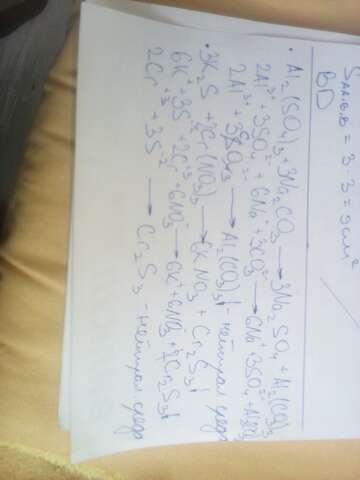 S = 3·3 = 9 см²
BD
· Al₂(SO₄)₃ + 3Na₂CO₃ → 3Na₂SO₄ + Al₂(CO₃)₃
2Al³⁺ + 3SO₄²⁻ + 6Na⁺ + 3CO₃²⁻ → 6Na⁺ 3SO₄²⁻ + Al₂(CO₃)₃
2Al³⁺ + 3CO₃²⁻ → Al₂(CO₃)₃↓ - нейтрал среда
· 3K₂S + 2Cr(NO₃)₃ → 6KNO₃ + Cr₂S₃↓
6K⁺ + 3S⁻² + 2Cr⁺³ + 6NO₃⁻ → 6K⁺ + 6NO₃⁻ + Cr₂S₃↓
2Cr⁺³ + 3S⁻² → Cr₂S₃ - нейтрал среда